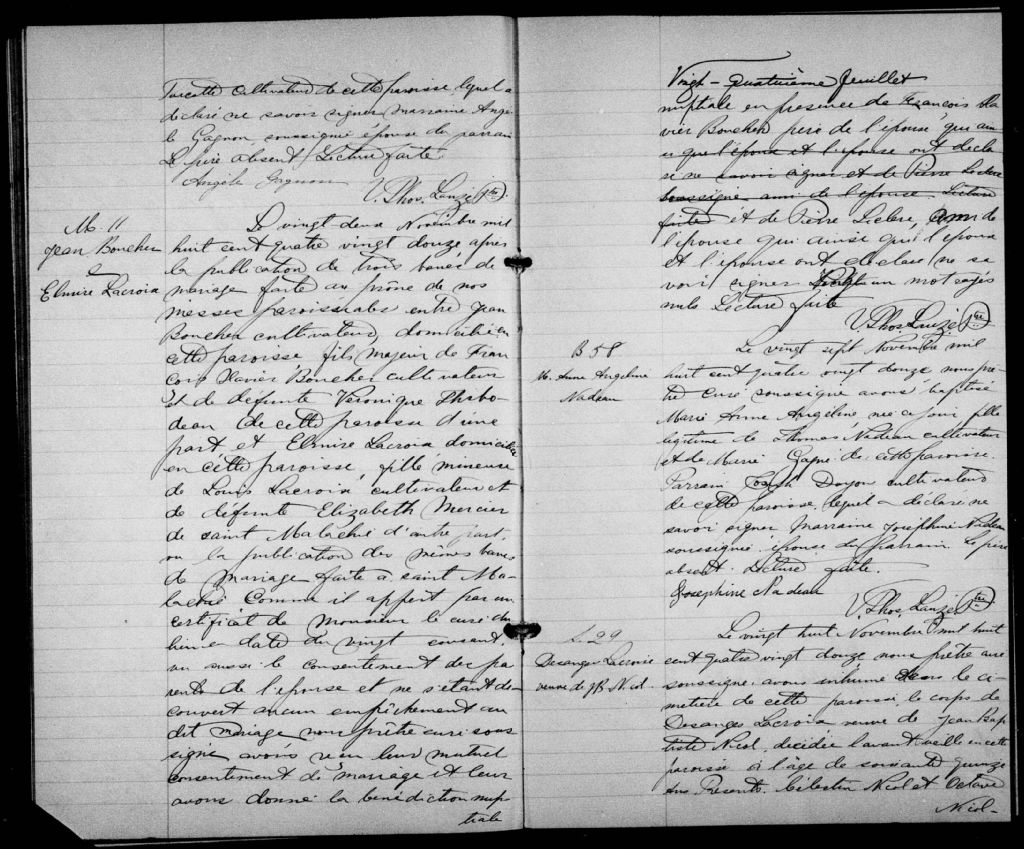 Turcotte cultivateur de cette paroisse lequel a
déclaré ne savoir signer marraine Angè-
le Gagnon soussignée épouse du parrain
Le père absent Lecture faite
Angèle Gagnon
V. Thos. Lauzé Ptre.
M. 11
Jean Boucher
&
Elmire Lacroix
Le vingt deux Novembre mil
huit cent quatre vingt douze après
la publication de trois bancs de
mariage faite au prône de nos
messes paroissiales entre Jean
Boucher cultivateur, domicilié en
cette paroisse fils majeur de Fran
çois Xavier Boucher cultivateur
et de défunte Véronique Thibo-
deau de cette paroisse d'une
part, et Elmire Lacroix domiciliée
en cette paroisse, fille mineure
de Louis Lacroix cultivateur et
de défunte Elizabeth Mercier
de saint Malachie d'autre part,
vu la publication des mêmes bancs
de mariage faite a saint Ma-
lachie comme il appert par un
certificat de monsieur le curé du
lieu en date du vingt courant,
vu aussi le consentement des pa
rents de l'épouse et ne s'étant dé-
couvert aucun empêchement au
dit mariage nous prêtre curé sous
signé avons reçu leur mutuel
consentement de mariage et leur
avons donné la bénédiction nup
tiale
Vingt-quatrième feuillet
nuptiale en présence de François Xa
vier Boucher père de l'épousé, qui ain
si que l'époux et l'épouse ont décla
ré ne savoir signer et de Pierre Leclerc
soussigné ami de l'épouse Lecture
faite et de Pierre Leclerc, ami de
l'épouse qui ainsi que l'époux
et l'épouse ont déclaré ne sa
voir signer un mot rayés
nuls Lecture faite
V. Thos. Lauzé Ptre.
B 58
M. Anne Angeline
Nadeau
Le vingt sept Novembre mil
huit cent quatre vingt douze nous prê
tre curé soussigné avons baptisé
Marie Anne Angeline née ce jour fille
légitime de Thomas Nadeau cultivateur
et de Marie Gagné de cette paroisse.
Parrain Joseph Doyon cultivateur
de cette paroisse, lequel a déclaré ne
savoir signer marraine Joséphine Nadeau
soussignée épouse du parrain. Le père
absent. Lecture faite.
Josephine Nadeau
V. Thos. Lauzé Ptre
S. 29
Desanges Lacroix
veuve de JB. Nicol.
Le vingt huit Novembre mil huit
cent quatre vingt douze nous prêtre curé
soussigné avons inhumé dans le ci-
metière de cette paroisse, le corps de
Desanges Lacroix veuve de Jean Bap
tiste Nicol, décédée l'avant veille en cette
paroisse à l'âge de soixante quinze
ans Présents. Célestin Nicol et Octave
Nicol-